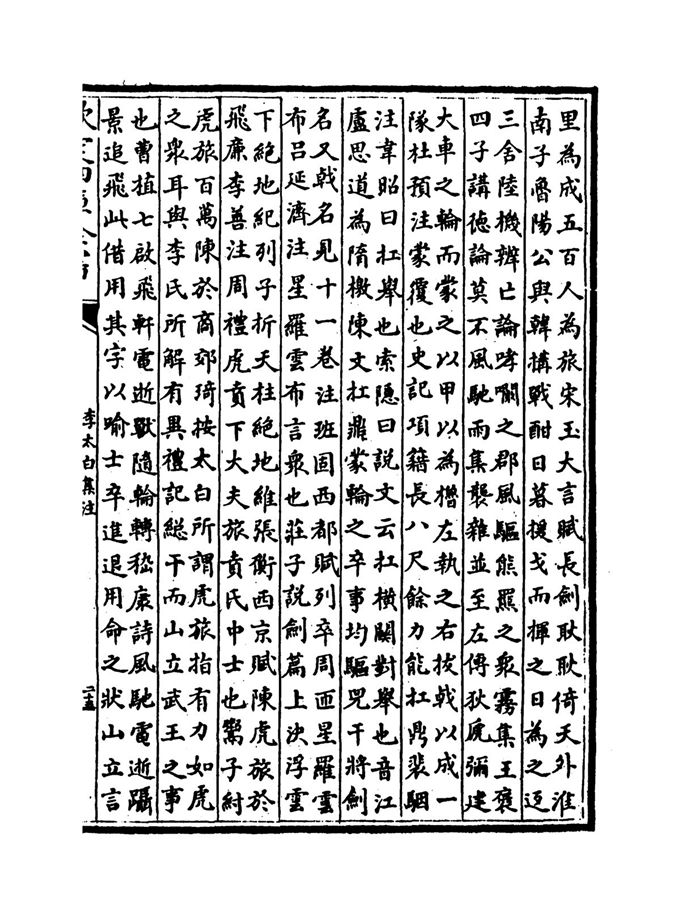 里為成五百人為旅宋玉大言賦長劍耿耿倚天外淮
南子魯陽公與韓搆戰酣日暮援戈而揮之日為之返
三舍陸機辨亡論哮㘚之郡風驅熊羆之衆霧集王褒
四子講徳論莫不風馳雨集襲雜並至左傳狄虒彌建
大車之輪而蒙之以甲以為櫓左執之右拔㦸以成一
隊杜預注蒙覆也史記項籍長八尺餘力能扛鼎裴駰
注韋昭曰扛舉也索隱曰説文云扛横闗對舉也音江
盧思道為隋檄陳文扛鼎蒙輪之卒事均驅兕干將劍
名又㦸名見十一卷注班固西都賦列卒周匝星羅雲
布吕延濟注星羅雲布言衆也莊子説劍篇上決浮雲
下絶地紀列子折天柱絶地維張衡西京賦陳虎旅於
飛廉李善注周禮虎賁下大夫旅賁氏中士也鬻子紂
虎旅百萬陳於商郊琦按太白所謂虎旅指有力如虎
之衆耳與李氏所解有異禮記總干而山立武王之事
也曹植七啟飛軒電逝獸隨輪轉嵇康詩風馳電逝躡
景追飛此借用其字以喻士卒進退用命之狀山立言
李太白集注